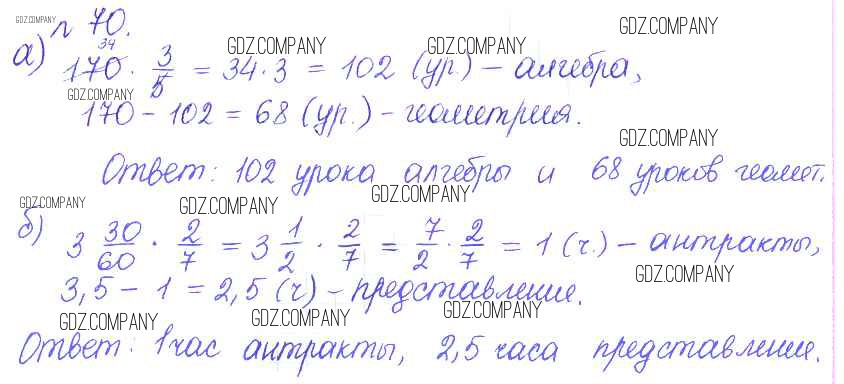 GDZ.COMPANY № 70.
GDZ.COMPANY GDZ.COMPANY GDZ.COMPANY
34
а) 170 · 3/5 = 34 · 3 = 102 (ур.) – алгебра,
GDZ.COMPANY
170 – 102 = 68 (ур.) – геометрия.
GDZ.COMPANY
Ответ: 102 урока алгебры и 68 уроков геомет.
GDZ.COMPANY GDZ.COMPANY GDZ.COMPANY
б) 3 30/60 · 2/7 = 3 1/2 · 2/7 = 7/2 · 2/7 = 1 (ч.) – антракты,
GDZ.COMPANY
3,5 – 1 = 2,5 (ч) – представление.
GDZ.COMPANY GDZ.COMPANY GDZ.COMPANY
Ответ: 1 час антракты, 2,5 часа представление.